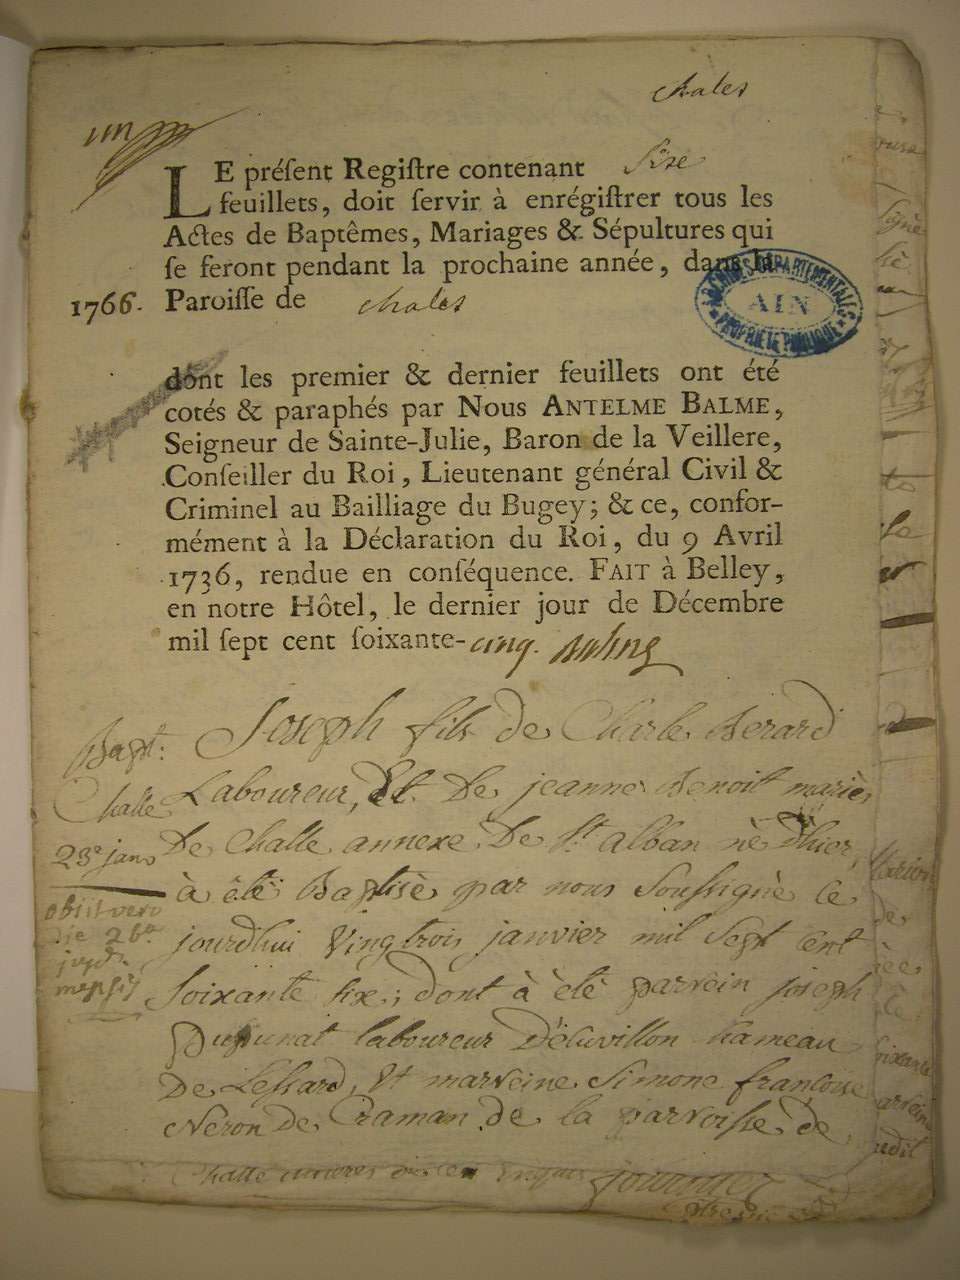 chales
un
LE préſent Regiſtre contenant Sixe
feuillets, doit ſervir à enrégiſtrer tous les
Actes de Baptêmes, Mariages & Sépultures qui
ſe feront pendant la prochaine année, dans la
1766. Paroiſſe de chales
ARCHIVES DÉPARTEMENTALES
AIN
PROPRIÉTÉ PUBLIQUE
dont les premier & dernier feuillets ont été
cotés & paraphés par Nous ANTELME BALME,
Seigneur de Sainte-Julie, Baron de la Veillere,
Conſeiller du Roi, Lieutenant général Civil &
Criminel au Bailliage du Bugey; & ce, confor-
mément à la Déclaration du Roi, du 9 Avril
1736, rendue en conſéquence. FAIT à Belley,
en notre Hôtel, le dernier jour de Décembre
mil ſept cent ſoixante-cinq.
Bapt: Joseph fils de Charle Berard
Challe Laboureur, Et De jeanne Benoit mariés
23e janv De Challe annexe De St alban né D'hier,
à été Baptisé par nous Soussigné ce
obiit vero
die 26a jourdhui Vingtrois janvier mil Sept cent
Soixante six; dont à été parrein joseph
laboureur hameau
De Lessard, Et marreine Simone françoise
Neron De Craman de la parroisse de
Challe